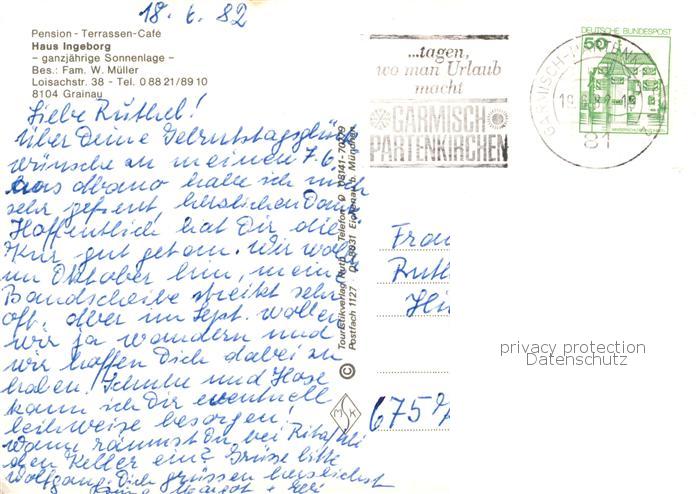 18. 6. 82
Pension - Terrassen-Café
Haus Ingeborg
- ganzjährige Sonnenlage -
Bes.: Fam. W. Müller
Loisachstr. 38 - Tel. 0 88 21/89 10
8104 Grainau
Liebe Ruthel!
Über Deine Geburtstagsglück
wünsche zu meinem 7.6.
aus Abano habe ich mich
sehr gefreut, herzlichen Dank
Hoffentlich hat Dir die
Kur gut getan. Wir woll
im Oktober hin, mein
Bandscheibe streikt sehr
oft, aber im Sept. wollen
wir ja wandern und
wir hoffen Dich dabei zu
haben. Schuhe und Hose
kann ich Dir eventuell
leihweise besorgen!
Wann räumst Du bei
den Keller ein? Grüsse bitte
Wolfgang. Dich grüssen herzlichst
Margot +
© Touristikverlag Telefon 08141-70209
Postfach 1127 D-8031 b. München
MSK
...tagen,
wo man Urlaub
macht
GARMISCH
PARTENKIRCHEN
GARMISCH-PARTENK
81
DEUTSCHE BUNDESPOST
50
Frau
Ruth
Hi
675
privacy protection
Datenschutz